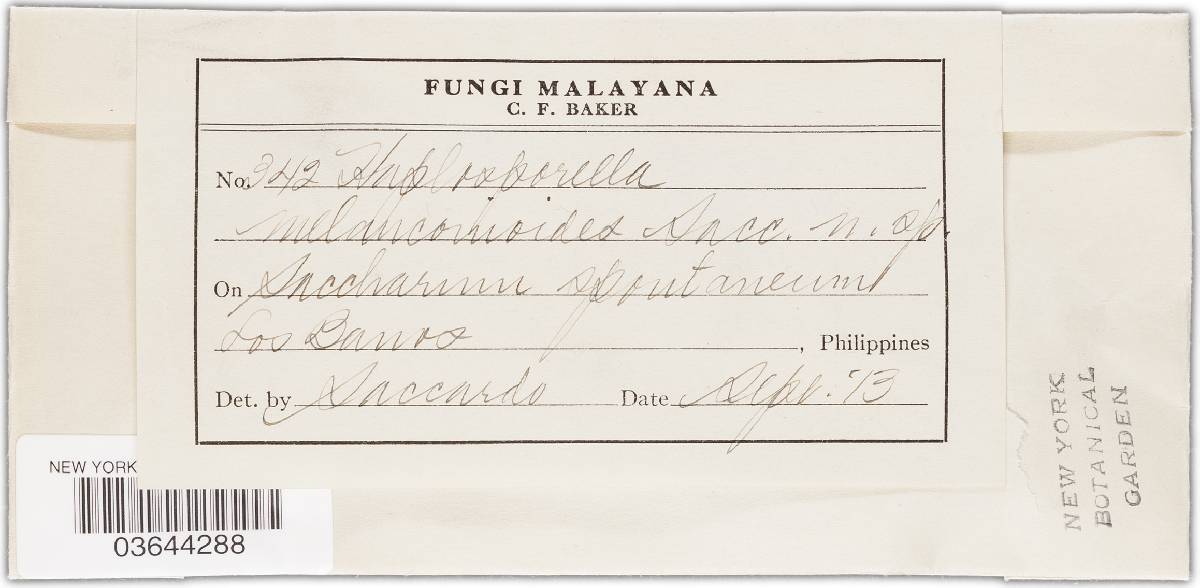 FUNGI MALAYANA
C. F. BAKER
No. 342 Haplosporella
melanconioides Sacc. n. sp.
On Saccharum spontaneum
Los Banos, Philippines
Det. by Saccardo Date Sept. '13
NEW YORK
03644288
NEW YORK
BOTANICAL
GARDEN